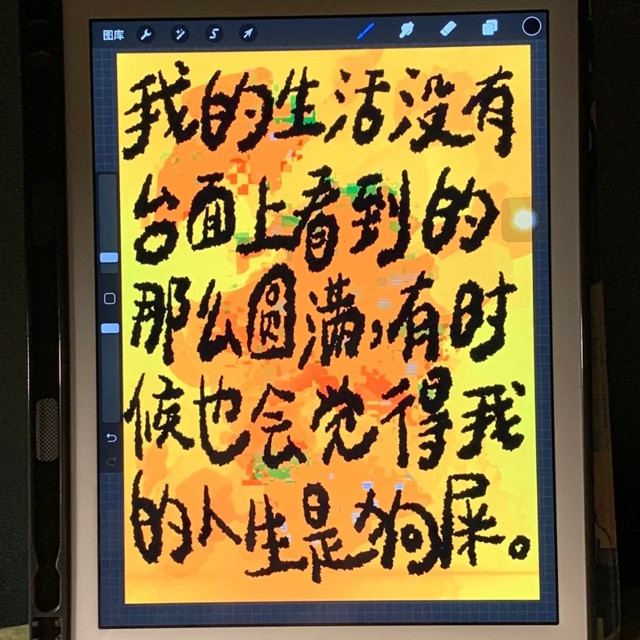 图库
我的生活没有
台面上看到的
那么圆满,有时
候也会觉得我
的人生是狗屎。